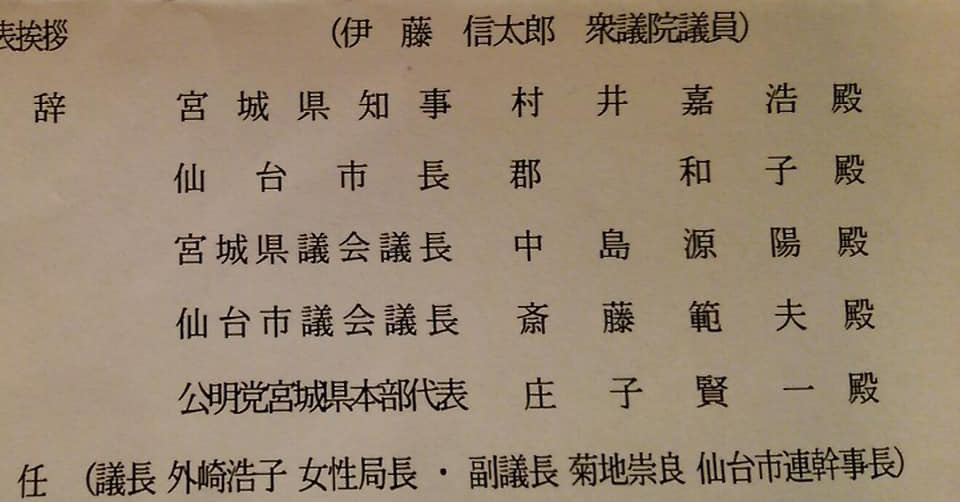 表挨拶 (伊藤 信太郎 衆議院議員)
辞 宮城県知事 村井嘉浩殿
仙台市長 郡 和子殿
宮城県議会議長 中島源陽殿
仙台市議会議長 斎藤範夫殿
公明党宮城県本部代表 庄子賢一殿
任 (議長 外崎浩子 女性局長 ・ 副議長 菊地崇良 仙台市連幹事長)